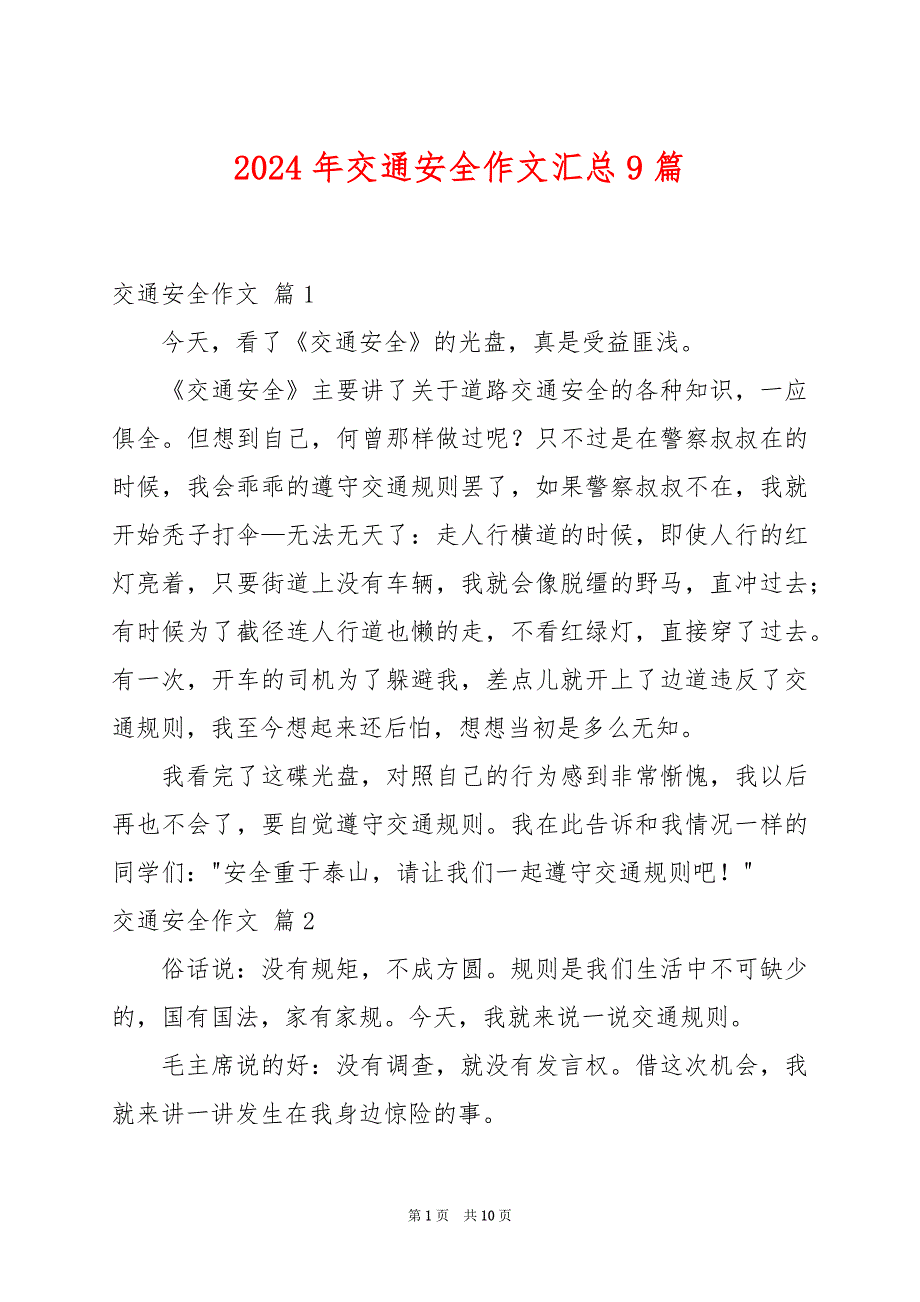 2024年交通安全作文汇总9篇
交通安全作文 篇1
今天，看了《交通安全》的光盘，真是受益匪浅。
《交通安全》主要讲了关于道路交通安全的各种知识，一应
俱全。但想到自己，何曾那样做过呢？只不过是在警察叔叔在的
时候，我会乖乖的遵守交通规则罢了，如果警察叔叔不在，我就
开始秃子打伞—无法无天了：走人行横道的时候，即使人行的红
灯亮着，只要街道上没有车辆，我就会像脱缰的野马，直冲过去；
有时候为了截径连人行道也懒的走，不看红绿灯，直接穿了过去。
有一次，开车的司机为了躲避我，差点儿就开上了边道违反了交
通规则，我至今想起来还后怕，想想当初是多么无知。
我看完了这碟光盘，对照自己的行为感到非常惭愧，我以后
再也不会了，要自觉遵守交通规则。我在此告诉和我情况一样的
同学们："安全重于泰山，请让我们一起遵守交通规则吧！"
交通安全作文 篇2
俗话说：没有规矩，不成方圆。规则是我们生活中不可缺少
的，国有国法，家有家规。今天，我就来说一说交通规则。
毛主席说的好：没有调查，就没有发言权。借这次机会，我
就来讲一讲发生在我身边惊险的事。
第1页 共10页